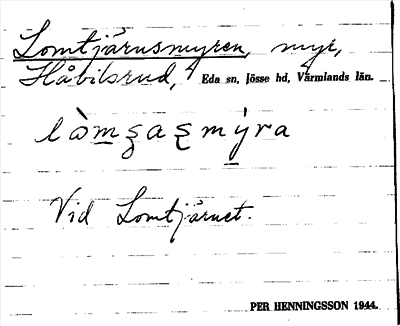 Lomtjärnsmyren, myr,
Håbilsrud, Eda sn, Jösse hd, Värmlands län.
Vid Lomtjärnet.
PER HENNINGSSON 1944.